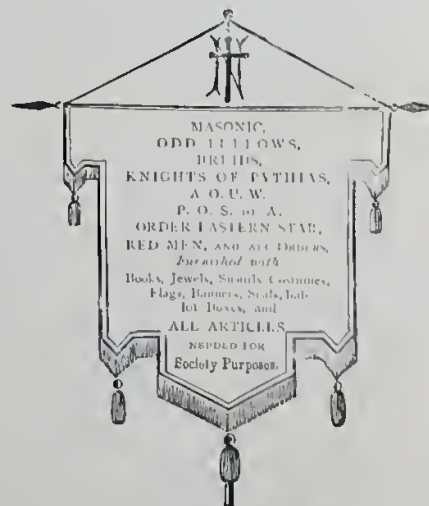 MASONIC,
ODD FELLOWS,
DRUIDS,
KNIGHTS OF PYTHIAS,
A. O. U. W.
P. O. S. OF A.
ORDER EASTERN STAR,
RED MEN, AND ALL ORDERS,
Furnished with
Books, Jewels, Swords, Costumes,
Flags, Banners, Seals, Bal-
lot Boxes, and
ALL ARTICLES
NEEDED FOR
Society Purposes.